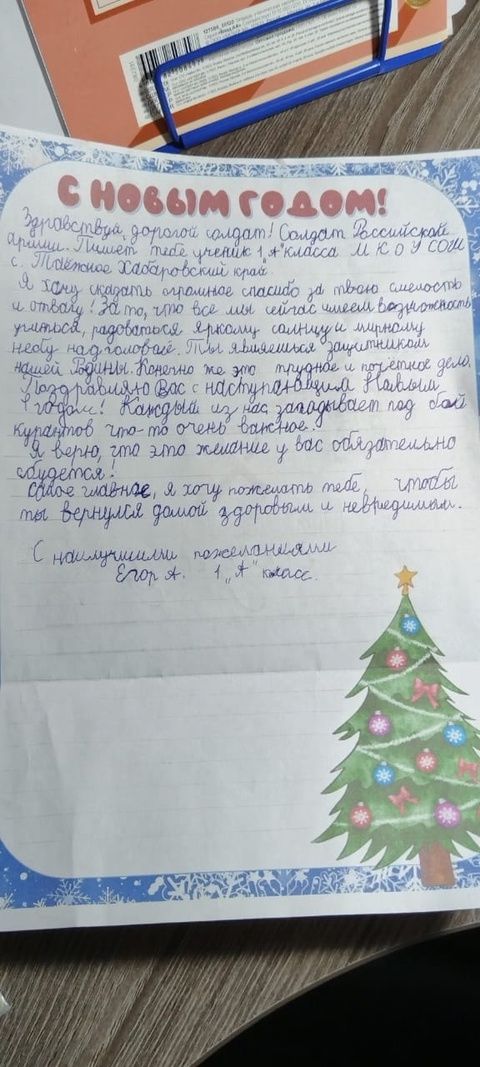 С НОВЫМ ГОДОМ!
Здравствуй, дорогой солдат! Солдат Российской
армии. Пишет тебе ученик 1 „А" класса МКОУ СОШ
с. Таёжное Хабаровский край.
Я хочу сказать огромное спасибо за твою смелость
и отвагу! За то, что все мы сейчас имеем возможность
учиться, радоваться яркому солнцу и мирному
небу над головой. Ты являешься защитником
нашей Родины. Конечно же это трудное и почётное дело.
Поздравляю Вас с наступающим Новым
годом! Каждый из нас загадывает под бой
курантов что-то очень важное.
Я верю, что это желание у вас обязательно
сбудется!
Самое главное, я хочу пожелать тебе, чтобы
ты вернулся домой здоровым и невредимым.
С наилучшими пожеланиями
Егор А. 1 „А" класс.